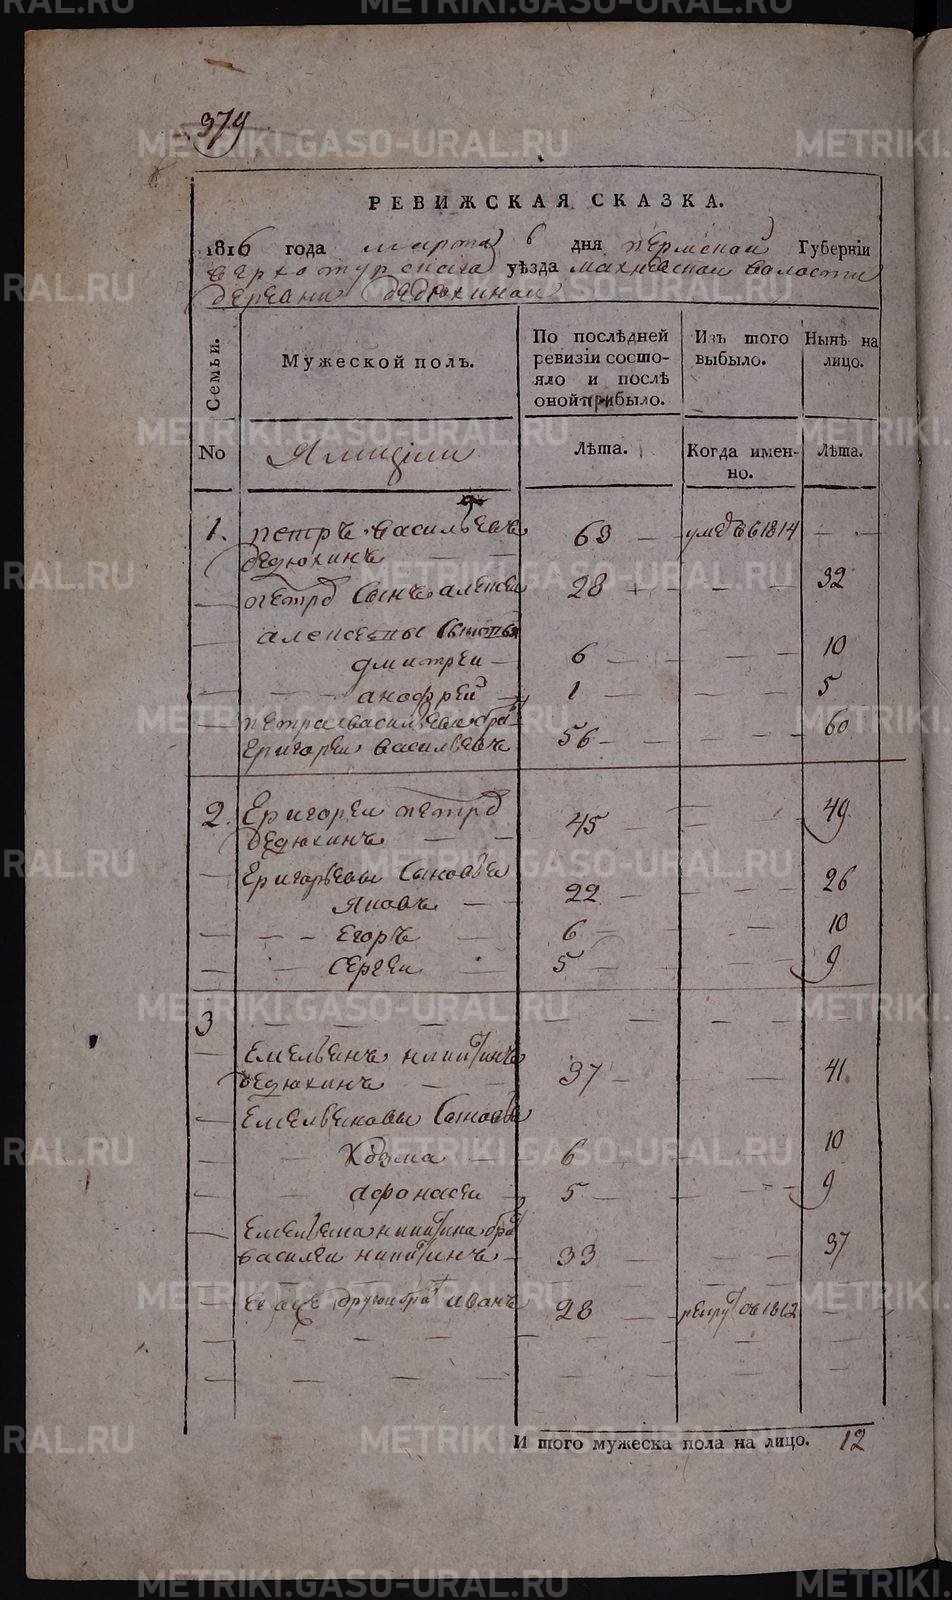 379
РЕВИЖСКАЯ СКАЗКА.
1816 года марта 6 дня пермской Губерніи
верхотурскаго уѣзда махневской волости
деревни дедюхиной
Семьи.
Мужеской полъ.
По послѣдней ревизіи состояло и послѣ оной прибыло.
Изъ того выбыло.
Нынѣ на лицо.
No
Ямщики
Лѣта.
Когда именно.
Лѣта.
1. петръ васильевъ 63 умеръ в 1814
дедюхинъ
петра сынъ алексеи 28 32
алексеевы сыновья
дмитреи 6 10
анофреи 1 5
петра васильева брат
григореи васильевъ 56 60
2. григореи петров 45 49
дедюхинъ
григорьевы сыновья
яковъ 22 26
егоръ 6 10
сергеи 5 9
3
емельянъ никитинъ
дедюхинъ 37 41
емельяновы сыновья
козма 6 10
афонасеи 5 9
емельяна никитина брат
василеи никитинъ 33 37
ево же другои брат иванъ 28 рекрут в 1812
И того мужеска пола на лицо. 12
METRIKI.GASO-URAL.RU